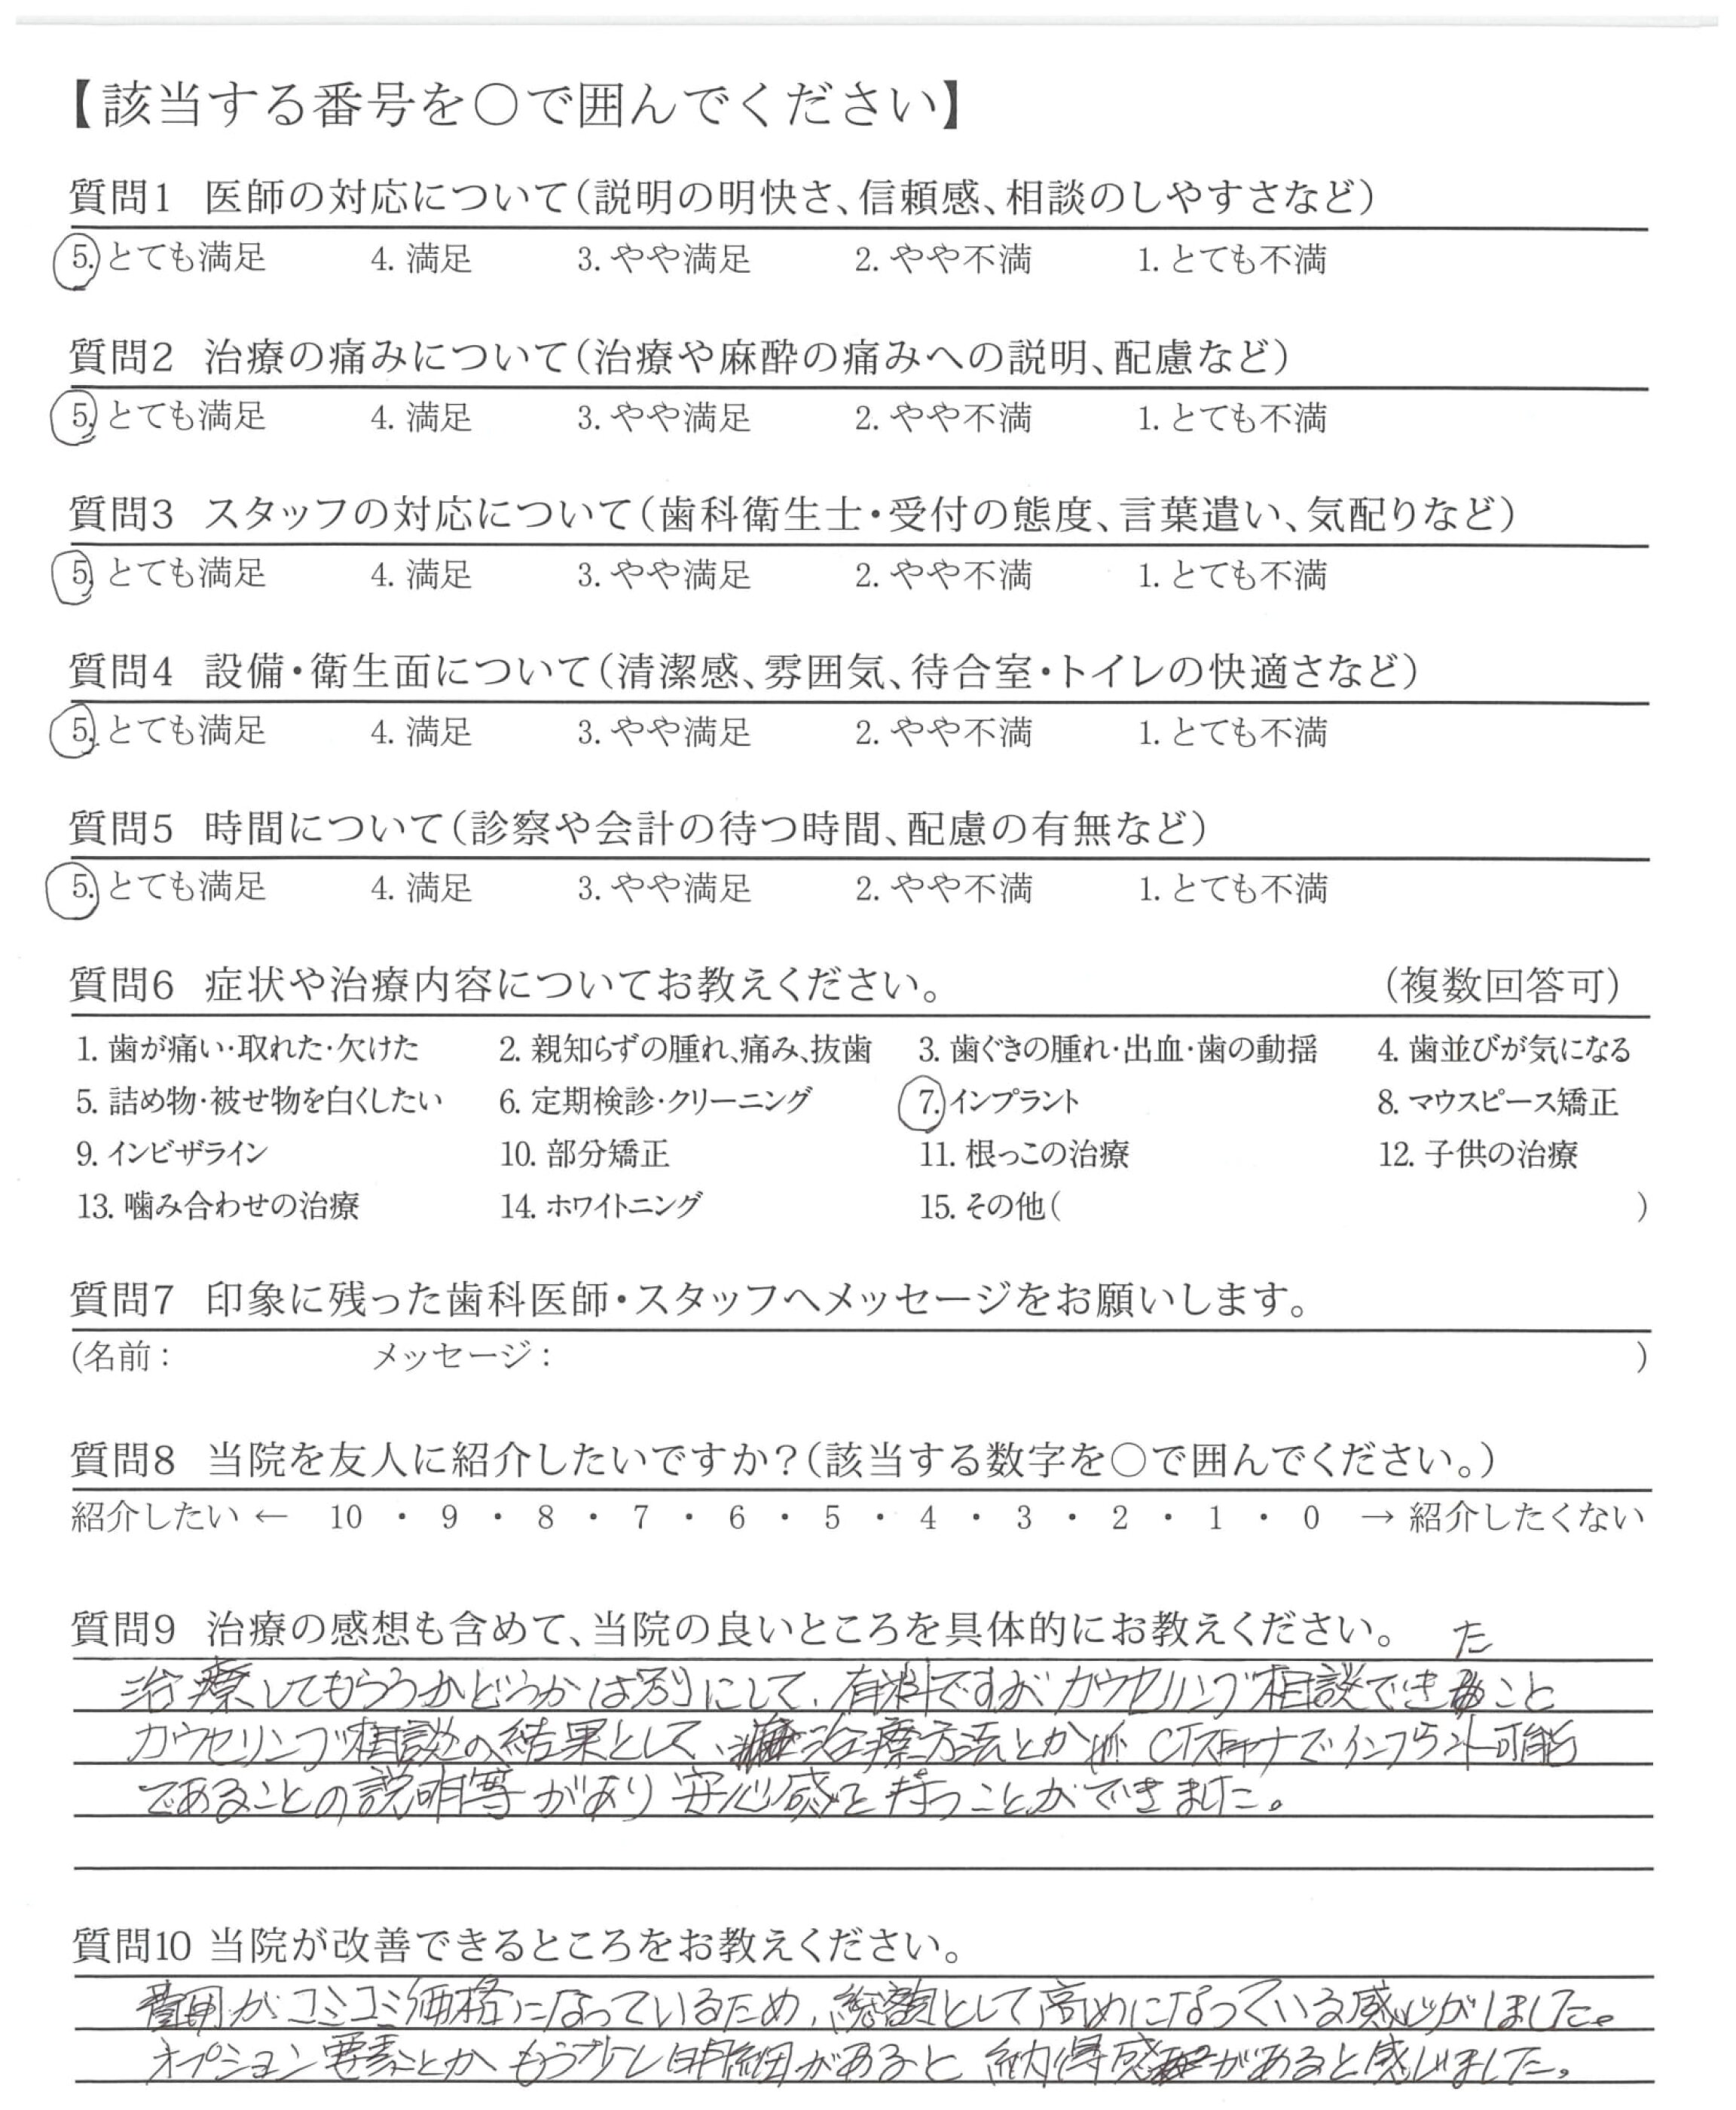 【該当する番号を○で囲んでください】
質問1 医師の対応について（説明の明快さ、信頼感、相談のしやすさなど）
5. とても満足 4. 満足 3. やや満足 2. やや不満 1. とても不満
質問2 治療の痛みについて（治療や麻酔の痛みへの説明、配慮など）
5. とても満足 4. 満足 3. やや満足 2. やや不満 1. とても不満
質問3 スタッフの対応について（歯科衛生士・受付の態度、言葉遣い、気配りなど）
5. とても満足 4. 満足 3. やや満足 2. やや不満 1. とても不満
質問4 設備・衛生面について（清潔感、雰囲気、待合室・トイレの快適さなど）
5. とても満足 4. 満足 3. やや満足 2. やや不満 1. とても不満
質問5 時間について（診察や会計の待つ時間、配慮の有無など）
5. とても満足 4. 満足 3. やや満足 2. やや不満 1. とても不満
質問6 症状や治療内容についてお教えください。 （複数回答可）
1. 歯が痛い・取れた・欠けた 2. 親知らずの腫れ、痛み、抜歯 3. 歯ぐきの腫れ・出血・歯の動揺 4. 歯並びが気になる
5. 詰め物・被せ物を白くしたい 6. 定期検診・クリーニング 7. インプラント 8. マウスピース矯正
9. インビザライン 10. 部分矯正 11. 根っこの治療 12. 子供の治療
13. 噛み合わせの治療 14. ホワイトニング 15. その他（ ）
質問7 印象に残った歯科医師・スタッフへメッセージをお願いします。
（名前： メッセージ： ）
質問8 当院を友人に紹介したいですか？（該当する数字を○で囲んでください。）
紹介したい ← 10 ・ 9 ・ 8 ・ 7 ・ 6 ・ 5 ・ 4 ・ 3 ・ 2 ・ 1 ・ 0 → 紹介したくない
質問9 治療の感想も含めて、当院の良いところを具体的にお教えください。
治療してもらうかどうかは別にして、有料ですがカウセリング相談できたこと
カウセリング相談の結果として、治療方法とか CTスキャナでインプラント可能
であることの説明等があり安心感を持つことができました。
質問10 当院が改善できるところをお教えください。
費用がコミコミ価格になっているため、総額として高めになっている感じがしました。
オプション要素とか もう少し明細があると 納得感があると感じました。